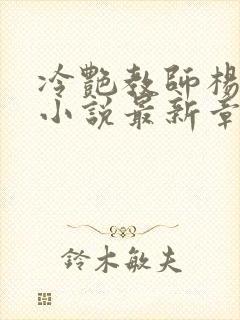 冷艷教師楊
小說最新章
鈴木敏夫